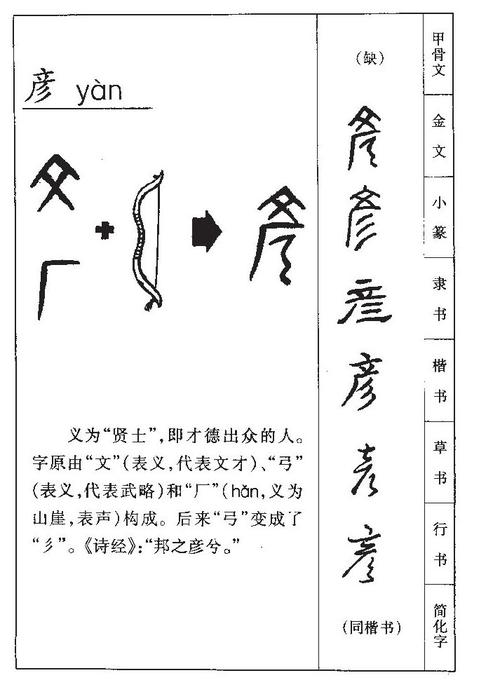 彦 yàn
义为“贤士”,即才德出众的人。
字原由“文”(表义,代表文才)、“弓”
(表义,代表武略)和“厂”(hǎn,义为
山崖,表声)构成。后来“弓”变成了
“彡”。《诗经》:“邦之彦兮。”
(缺)
甲骨文
彦
金文
彦
小篆
彦
隶书
彦
楷书
彦
草书
彦
行书
(同楷书)
简化字